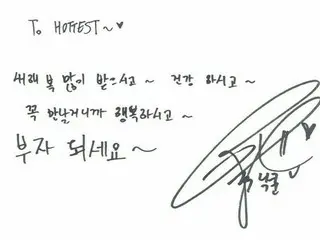 To HOTTEST~♥
새해 복 많이 받으시고~ 건강 하시고~
꼭 만날거니까 행복하시고~
부자 되세요~